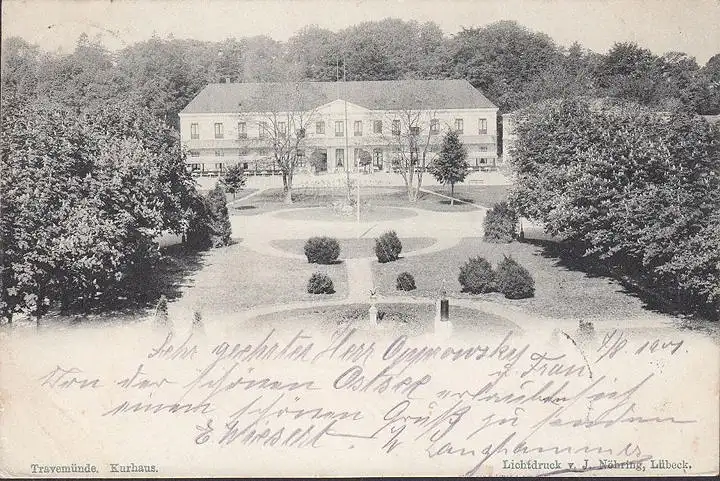 Sehr geehrter Herr Oppnowsky u. Frau 4/8 1901
Von der schönen Ostsee erlauben sich
einen schönen Gruß zu senden
E Wiesert. Langhammer
Travemünde. Kurhaus.
Lichtdruck v. J. Nöhring, Lübeck.